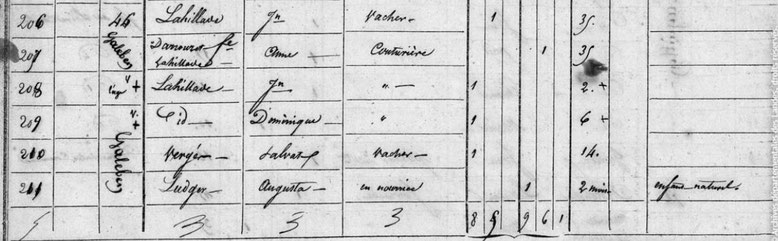 206 46 Lahillade Jn Vacher 1 35.
207 Danouro fe Lahillade Anne Couturière 1 35
208 + Lahillade Jn " 1 2. +
209 + id Dominique " 1 6 +
210 Verger Salvat Vacher 1 14.
211 Ludger Augusta en nourrice 1 2 mois enfant naturel.
3 3 3 8 5 9 6 1